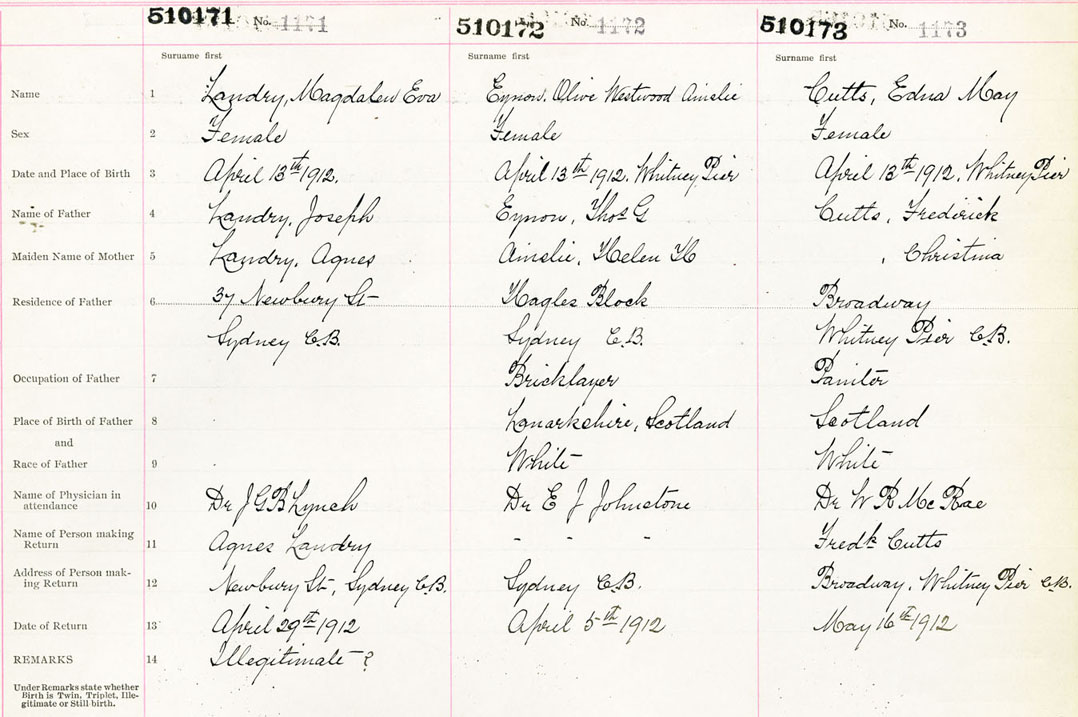 510171 No. 1171 510172 No. 1172 510173 No. 1173
Surname first Surname first Surname first
Name 1 Landry, Magdalen Eva Eynon, Olive Westwood Ainslie Cutts, Edna May
Sex 2 Female Female Female
Date and Place of Birth 3 April 13th 1912. April 13th 1912. Whitney Pier April 13th 1912. Whitney Pier
Name of Father 4 Landry, Joseph Eynon, Thos G Cutts, Frederick
Maiden Name of Mother 5 Landry, Agnes Ainslie, Helen H , Christina
Residence of Father 6 37 Newbury St Hagles Block Broadway
Sydney C.B. Sydney C.B. Whitney Pier C.B.
Occupation of Father 7 Bricklayer Painter
Place of Birth of Father 8 Lanarkshire, Scotland Scotland
and
Race of Father 9 White White
Name of Physician in
attendance 10 Dr J G B Lynch Dr E J Johnstone Dr W R McRae
Name of Person making
Return 11 Agnes Landry - - - Fredk Cutts
Address of Person mak-
ing Return 12 Newbury St, Sydney C.B. Sydney C.B. Broadway, Whitney Pier C.B.
Date of Return 13 April 29th 1912 April 5th 1912 May 16th 1912
REMARKS 14 Illegitimate ?
Under Remarks state whether
Birth is Twin, Triplet, Ille-
gitimate or Still-birth.